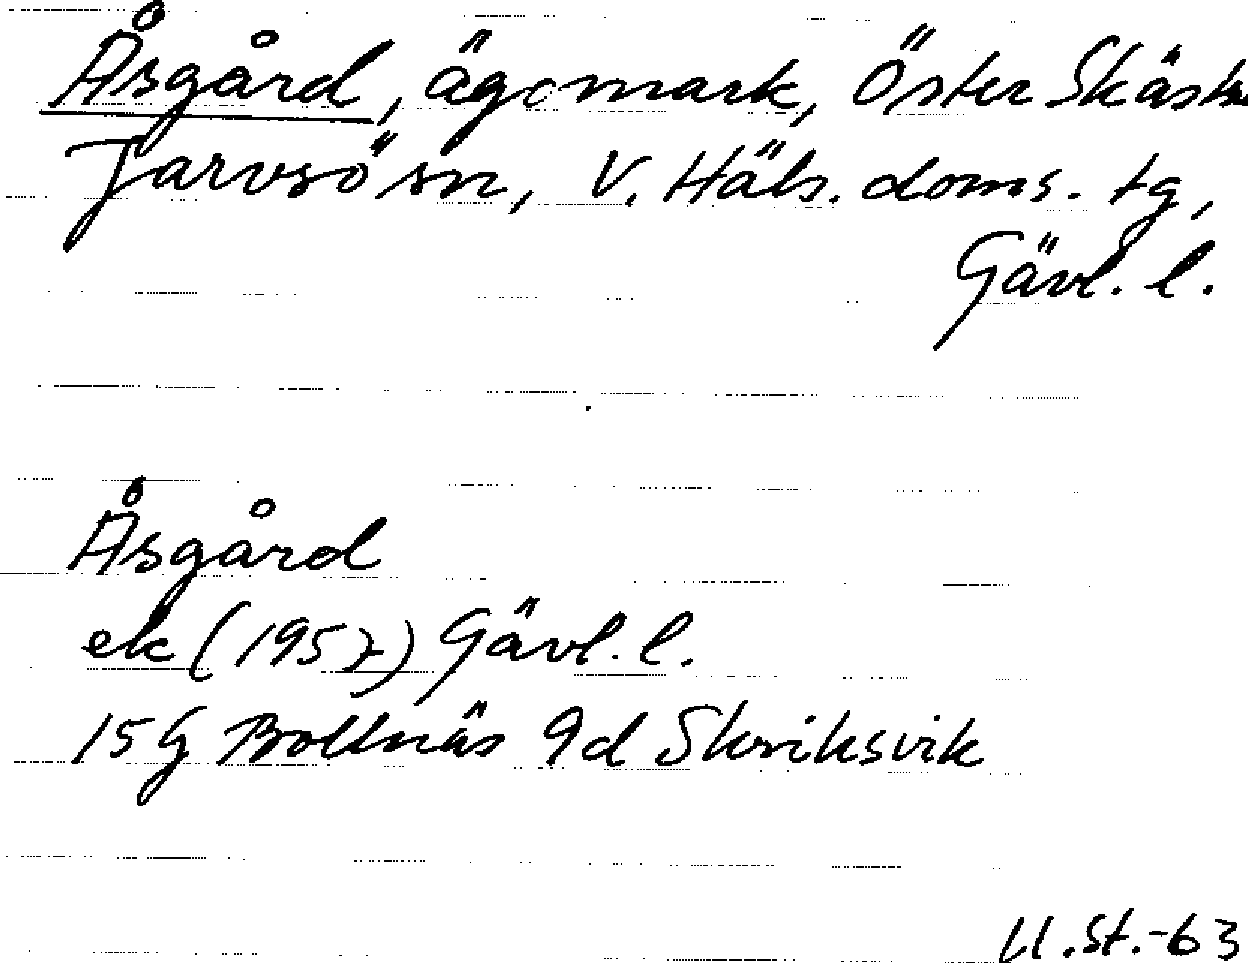 Åsgård, ägomark, Öster Skästra
Jarvsö sn, V. Häls. doms. tg,
Gävl. l.
Åsgård
ek (1957) Gävl. l.
15G Bollnäs 9d Skriksvik
U.St.-63